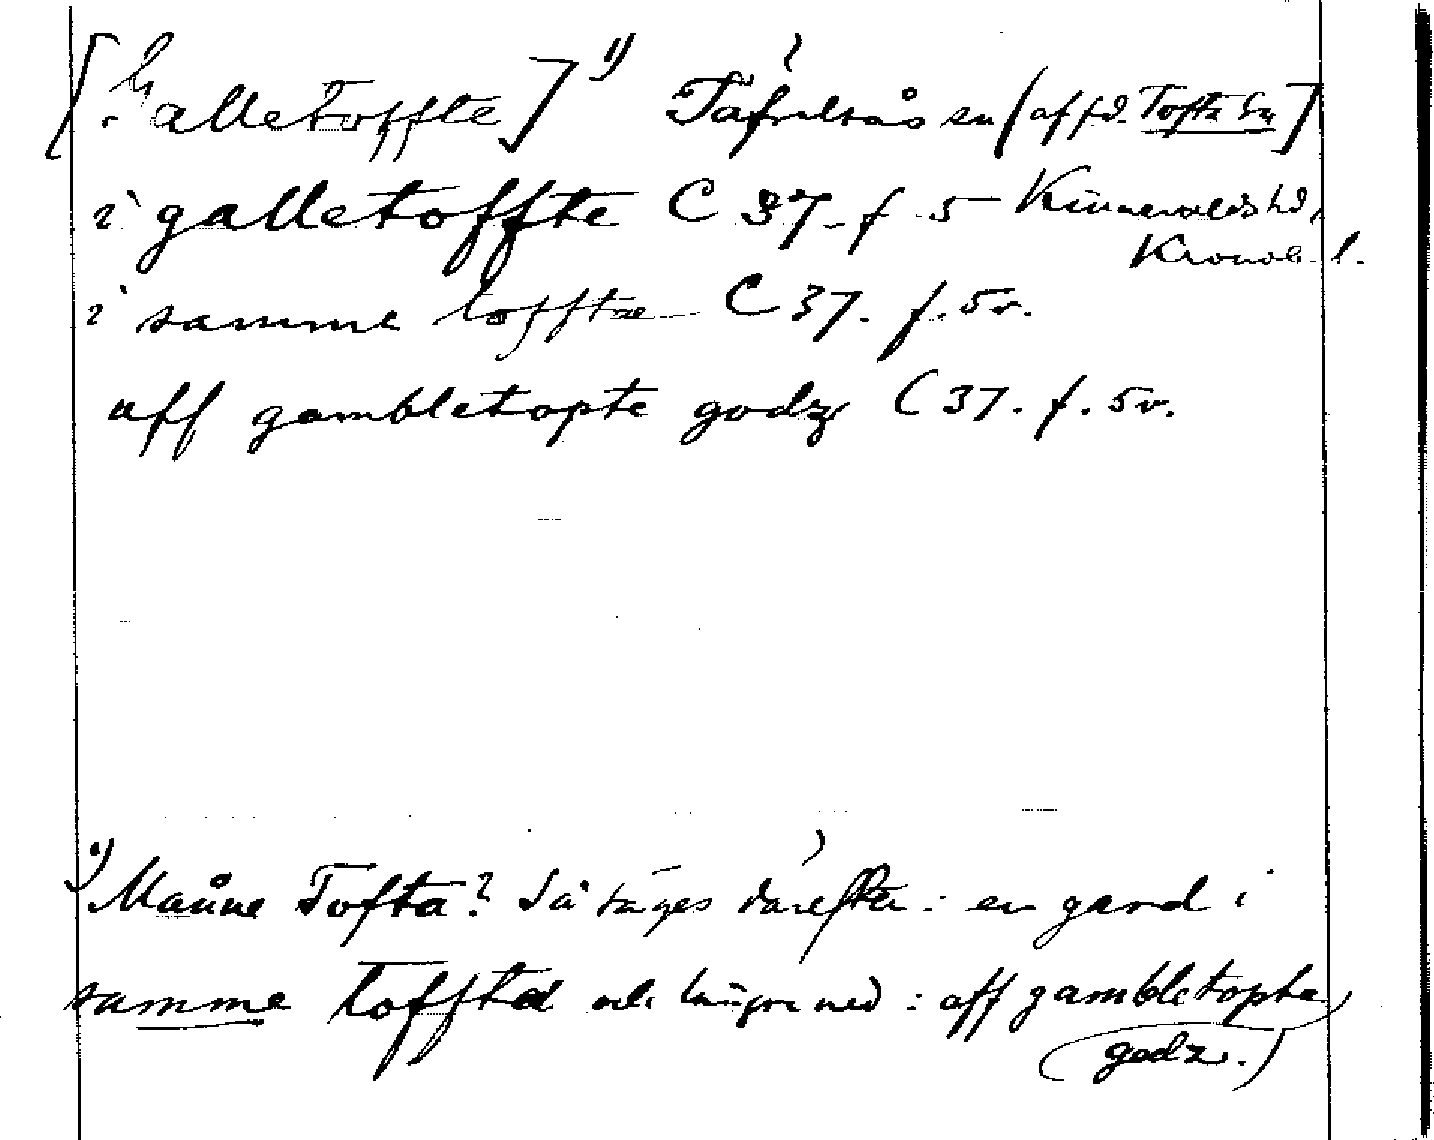 [Galletoffte] 1) Täfvelsås sn [affd. Tofta sn]
i galletoffte C 37. f 5 Kinnevalds hd,
Kronob. l.
i samme tofftæ C 37. f. 5v.
aff gambletopte godz C 37. f. 5v.
1) Månne Tofta? Så säges därefter: en gard i
samme tofftæ och längre ned: aff gambletopte
godz.